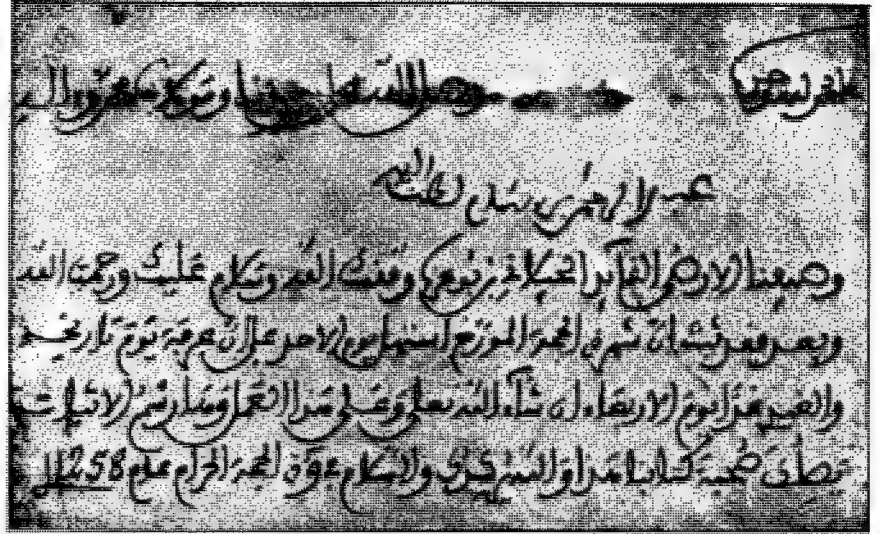 الحمد لله وحده وصلى الله على سيدنا ومولانا محمد وآله
عبد الرحمن لطف الله به
وصيفنا الارضى القائد الجيلاني بن بوعزة وفقك الله وسلام عليك ورحمت الله
وبعد فقد ثبت ان شهر ذي الحجة المؤرخ استهل يوم الاحد على ان عرفة يوم تاريخه
والعيد غدا يوم الاربعاء ان شاء الله تعلى وعلى هذا العمل رسم الاثبات
صحبة كتابنا هذا والله والسلام ذي الحجة الحرام عام 1258